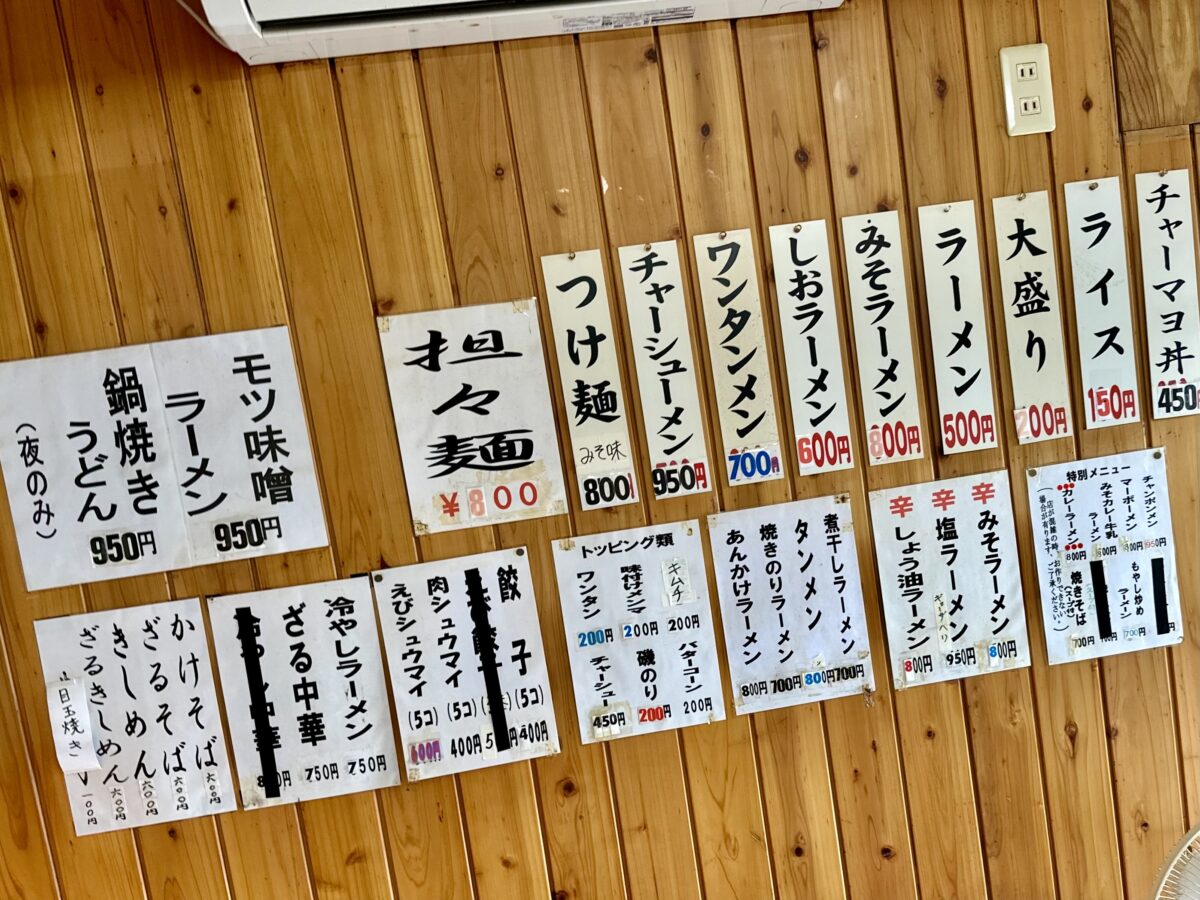 チャーマヨ丼 450
ライス 150円
大盛り 200円
ラーメン 500円
みそラーメン 800円
しおラーメン 600円
ワンタンメン 700円
チャーシューメン 950円
つけ麺 みそ味 800円
担々麺 ¥800
モツ味噌
ラーメン 950円
鍋焼き
うどん 950円
(夜のみ)
特別メニュー
チャンポンメン 950円
マーボーメン 800円
みそカレー牛乳
ラーメン 900円
カレーラーメン 800円
店が混雑の時、お作りできない
場合が有ります。ご了承ください。
もやし炒め
ラーメン 700円
焼きそば
(スープ付) 700円
辛 みそラーメン 800円
辛 塩ラーメン 950円
辛 しょう油ラーメン 800円
煮干しラーメン 700円
タンメン 800円
焼きのりラーメン 700円
あんかけラーメン 800円
トッピング類
キムチ 200円
味付けメンマ 200円
ワンタン 200円
バターコーン 200円
磯のり 200円
チャーシュー 450円
餃子 (5コ) 400円
肉シュウマイ (5コ) 400円
えびシュウマイ (5コ) 600円
冷やしラーメン 750円
ざる中華 750円
かけそば 六〇〇円
ざるそば 六〇〇円
きしめん 六〇〇円
ざるきしめん 六〇〇円
目玉焼き 一〇〇円